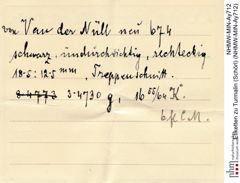 von Van der Nüll neu 674
schwarz, undurchsichtig, rechteckig
18·5 : 12·5 mm, Treppenschnitt.
3·4773 3·4730 g, 16 55/64 K.
NHMW-MIN-Ay712
Etiketten zu Turmalin (Schörl) (NHMW-MIN-Ay712)
nhm